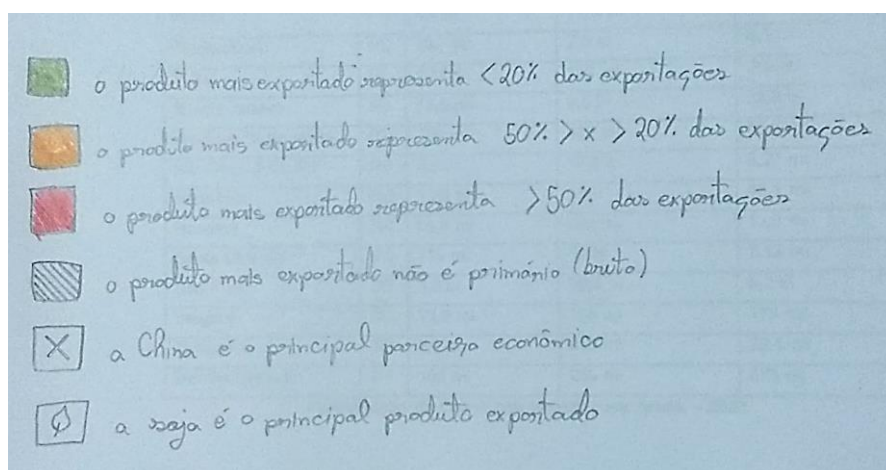 o produto mais exportado representa <20% das exportações
o produto mais exportado representa 50% > x > 20% das exportações
o produto mais exportado representa >50% das exportações
o produto mais exportado não é primário (bruto)
X a China é o principal parceiro econômico
a soja é o principal produto exportado